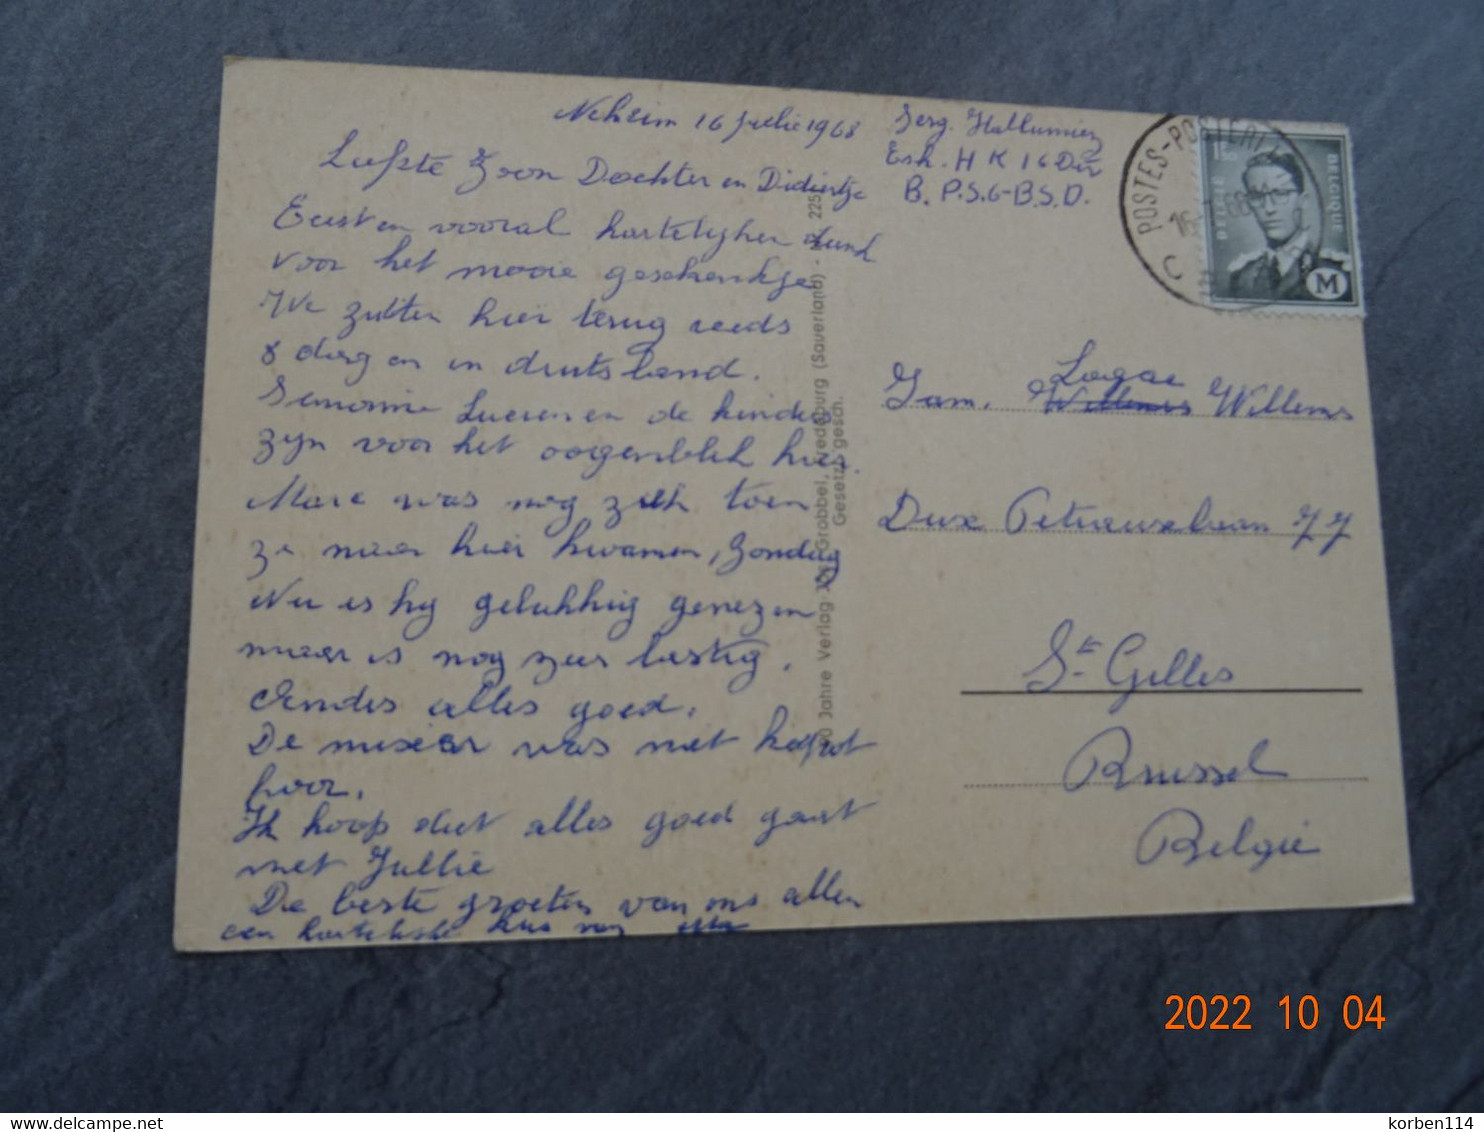 Neheim 16 Julie 1968
Liefste Zoon Dochter en Didiertje
Eerst en vooral hartelijken dank
voor het mooie geschenkje
We zitten hier terug reeds
8 dagen in duitsland.
Lucien en de kinders
zijn voor het oogenblik hier.
Marc was nog ziek toen
ze naar hier kwamen, Zondag
Nu is hij gelukkig genezen
maar is nog zeer lastig.
Anders alles goed.
De mixer was niet kapot
hoor.
Ik hoop dat alles goed gaat
met Jullie
De beste groeten van ons allen
een hartelijke kus van
Serg.
Esk. H K 16 Div
B. P.S.6-B.S.D.
POSTES-POSTERIJ
16
C
BELGIE BELGIQUE
M
Fam. Lagae Willems Willems
Rue 77
St Gilles
Brussel
België
Jahre Verlag Grobbel, Fredeburg (Sauerland) - 225
Gesetzl. gesch.
2022 10 04
delcampe.net
korben114